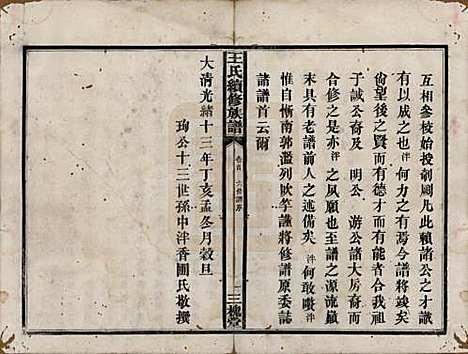 互相參稜始授剞劂凡此賴諸公之才識
有以成之也泮何力之有焉今譜將竣矣
尚望後之賢而有德才而有爲者合我祖
于誠公裔及明公游公諸大房裔
合修之是亦泮之夙願也至譜之源流顚
末具有老譜前人之述備矣泮何敢贅
惟自慚南郭濫列吹竽謹將修譜原委誌
諸譜首云爾
王氏續修族譜
卷首
六修譜序
三槐堂
大清光緒十三年丁亥孟冬月穀旦
珣公十三世孫中泮香圃氏敬撰